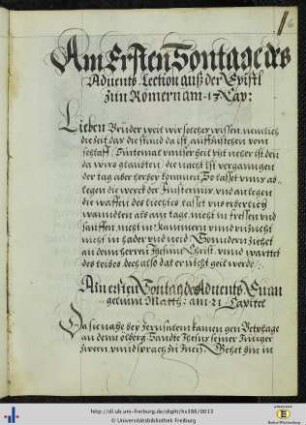 Am Ersten Sontage des
Aduents Lection auß der Epistl
zun Römern am 13 Cap:
Lieben Brüder weil wir solches wissen nemlich
die zeit das die stund da ist auffzustehen vom
schlaff Sintemal vnnser heil itzt neher ist den
da wirs glaubten die nacht ist vergangen
der tag aber herbey komen So lasset vnns ab
legen die werck der finsternis vnd anlegen
die waffen des liechtes lasset vns erbarlich
wanndeln als am tage nicht in fressen vnd
sauffen nicht in kammern vnnd vnzucht
nicht in hader vnd neid Sonndern ziehet
an den herren Jhesum Christ vnnd warttet
des leibes doch also das er nicht geil werde
Am ersten Sontag des Aduents Euan
gelium Matth: am 21 Capittel
Da sie nahe bey Jerusalem kamen gen Betphage
an denn ölberg Sandte Jhesus seiner Junger
zween vnnd sprach zu Inen Gehet hin in
http://dl.ub.uni-freiburg.de/diglit/hs388/0013
© Universitätsbibliothek Freiburg